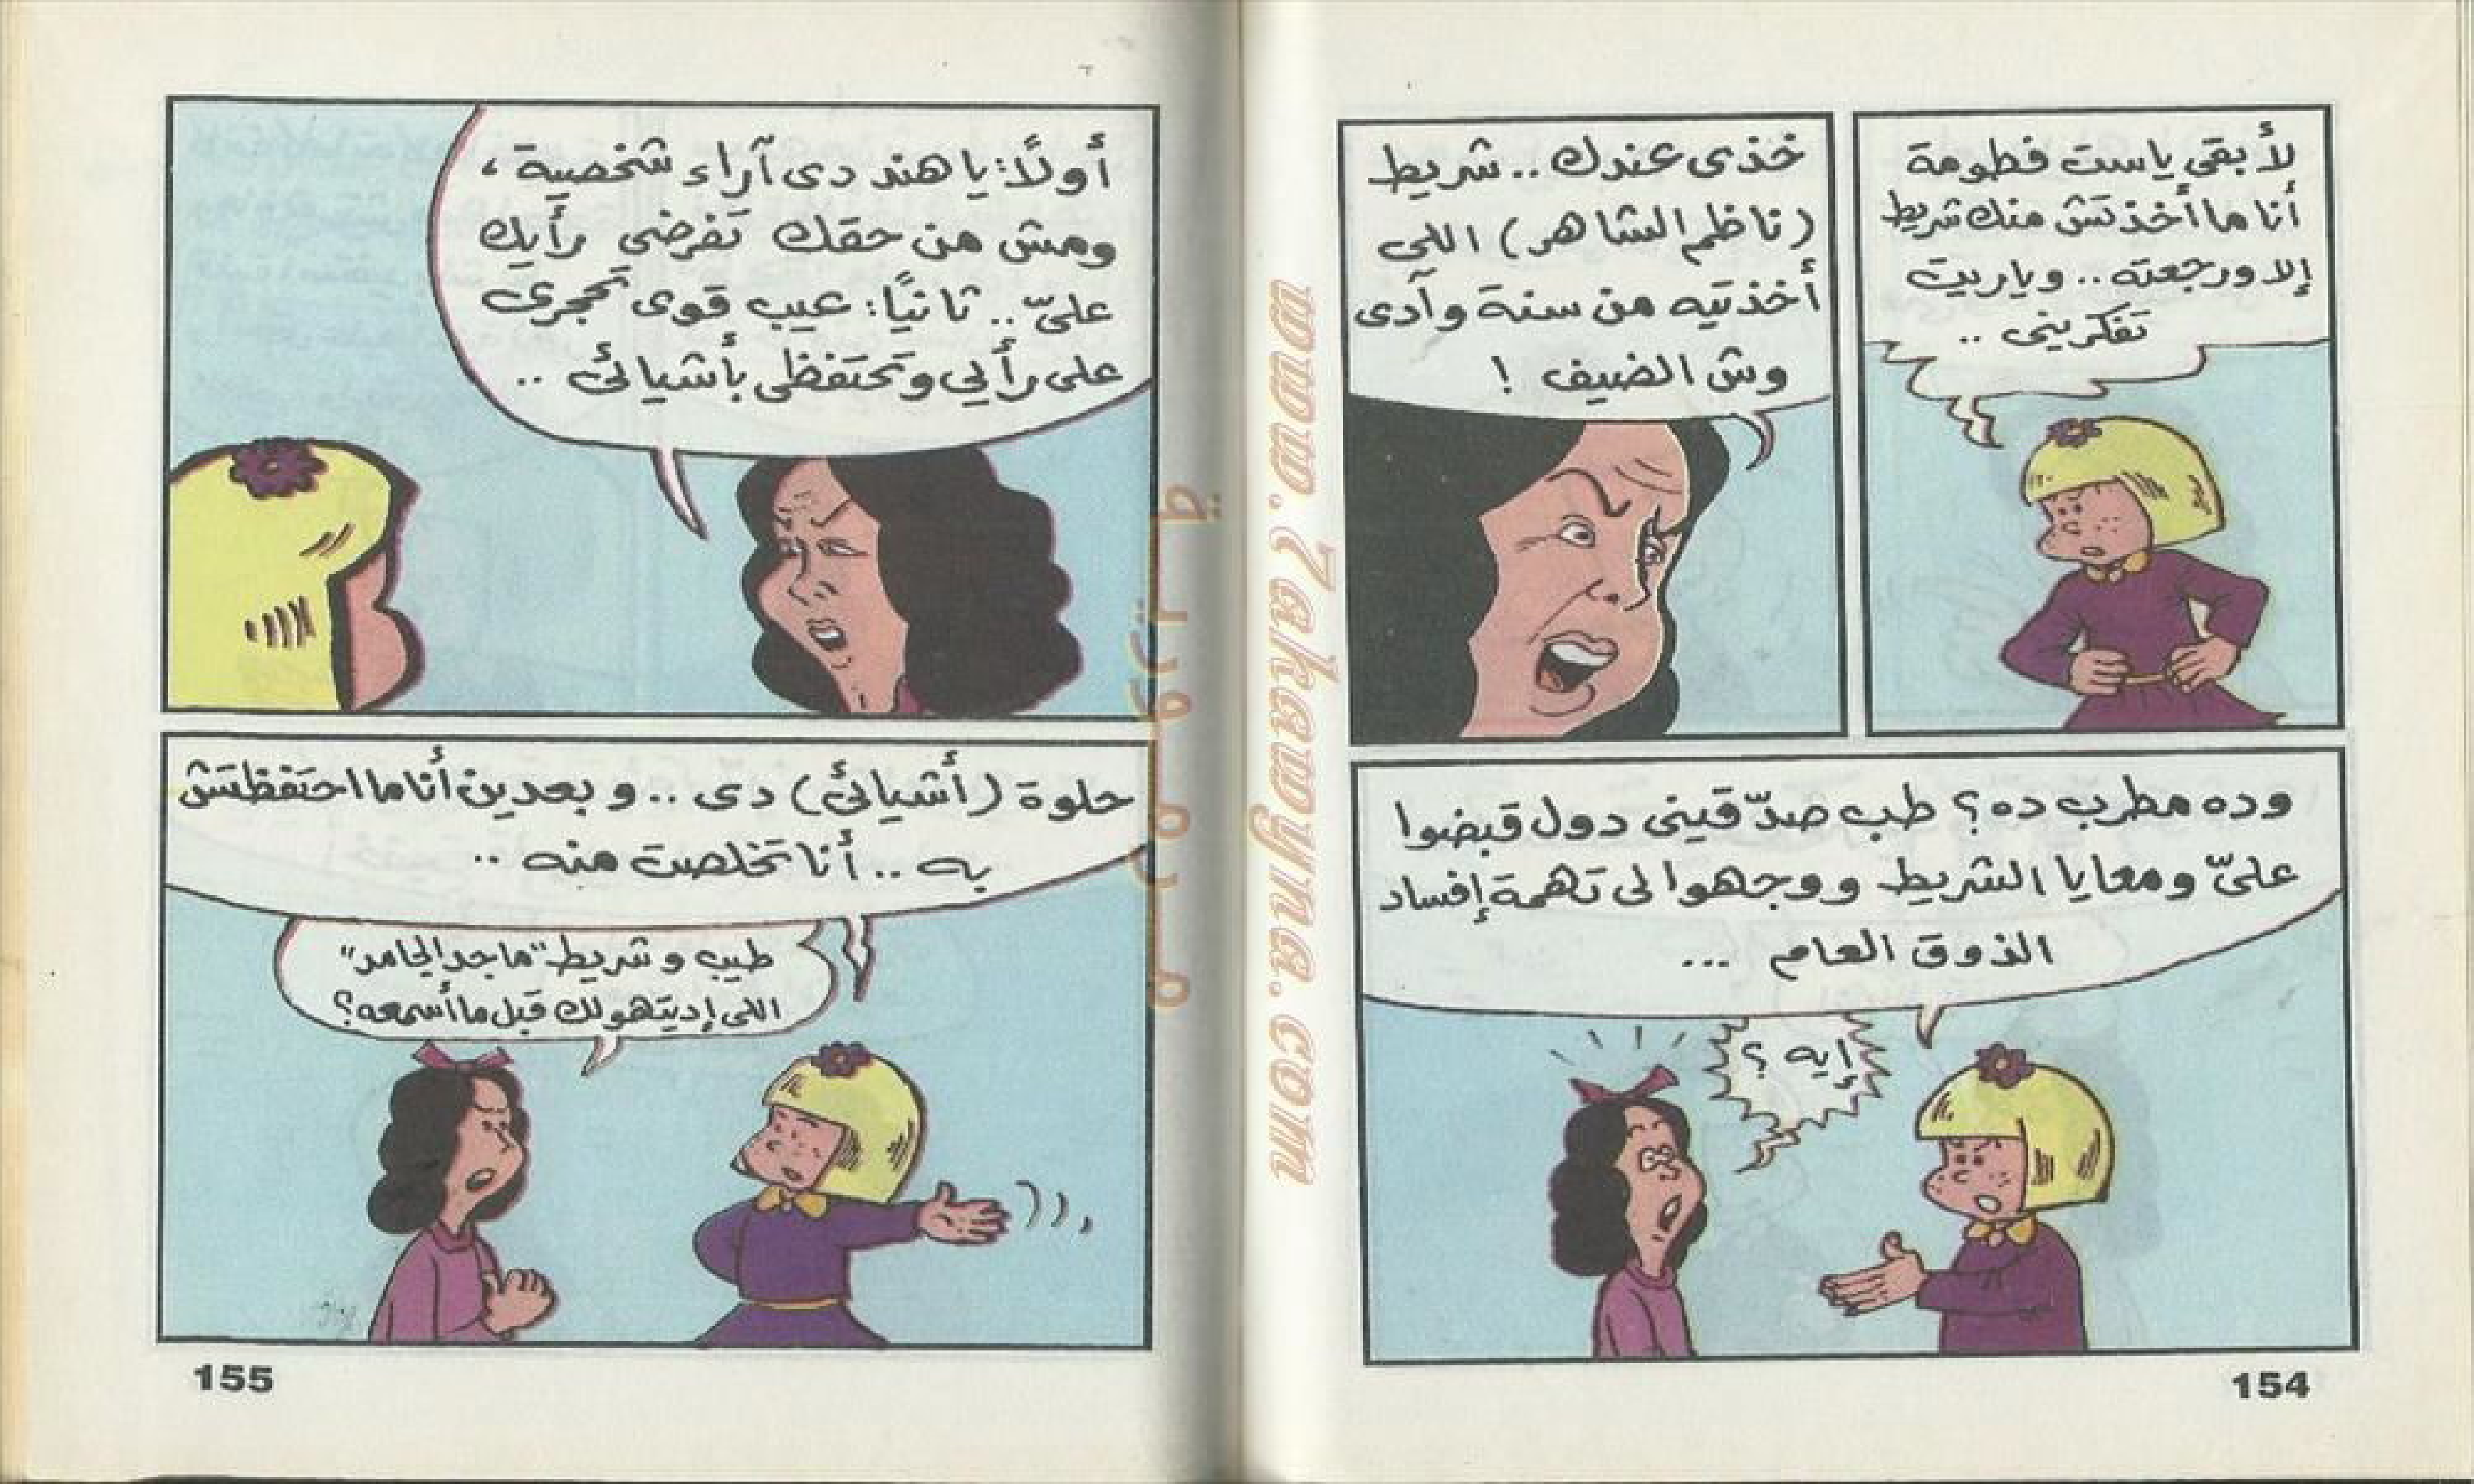 لأ بقى ياست فطومة
أنا ما أخذتش منك شريط
إلا ورجعته .. وياريت
تفكرينى ..
خذى عندك .. شريط
(ناظم الشاهر) اللى
أخذتيه من سنة وآدى
وش الضيف !
وده مطرب ده؟ طب صدّقينى دول قبضوا
علىّ ومعايا الشريط ووجهوا لى تهمة إفساد
الذوق العام ...
إيه ؟
154
أولًا: يا هند دى آراء شخصية ،
ومش من حقك تفرضى رأيك
علىّ .. ثانيًا: عيب قوى تحجرى
على رأيي وتحتفظى بأشيائى ..
حلوة (أشيائى) دى .. وبعدين أنا ما احتفظتش
به .. أنا تخلصت منه ..
طيب وشريط "ماجد الحامد"
اللى إديتهولك قبل ما أسمعه؟
155
www.7akawyna.com